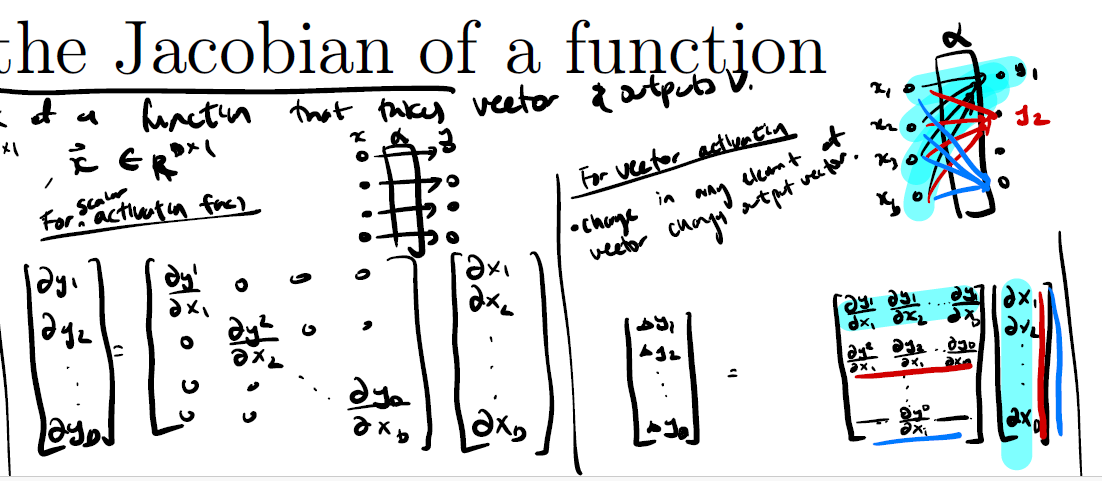 the Jacobian of a function
of a function that takes vector & outputs V.
x1
x⃗ ∈ R^{D×1}
For scalar activation func)
x α y
[∂y1 ∂y2 ⋮ ∂yD] = [∂y1/∂x1 0 0 0
0 ∂y2/∂x2 0
0 0 ⋱
0 0 ∂yD/∂xD] [∂x1 ∂x2 ⋮ ∂xD]
For vector activation
• change in any element of
vector changes output vector.
α
x1 y1
x2 y2
x3
xD
[Δy1 Δy2 ⋮ ΔyD] = [∂y1/∂x1 ∂y1/∂x2 … ∂y1/∂xD
∂y2/∂x1 ∂y2/∂x1 … ∂yD/∂xD
⋮
— ∂yD/∂xi —] [∂x1 ∂x2 ⋮ ∂xD]